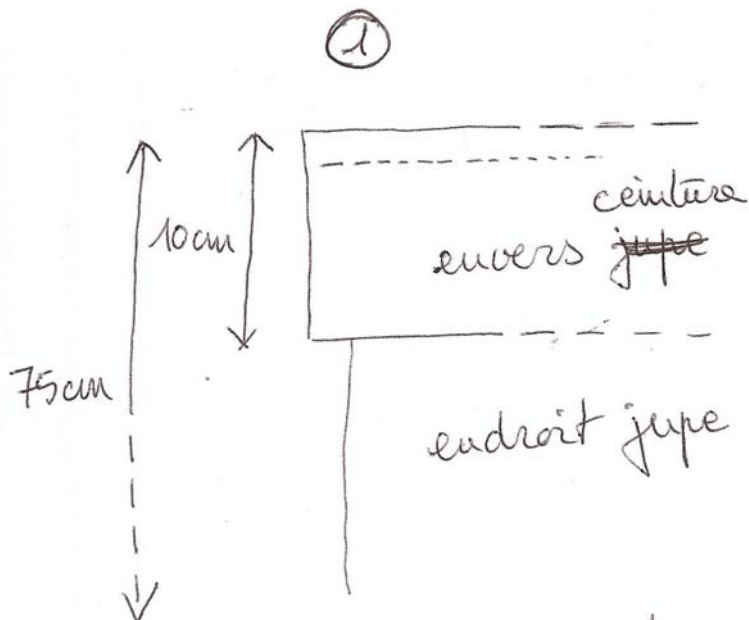 1
10cm
ceinture
envers jupe
75cm
endroit jupe